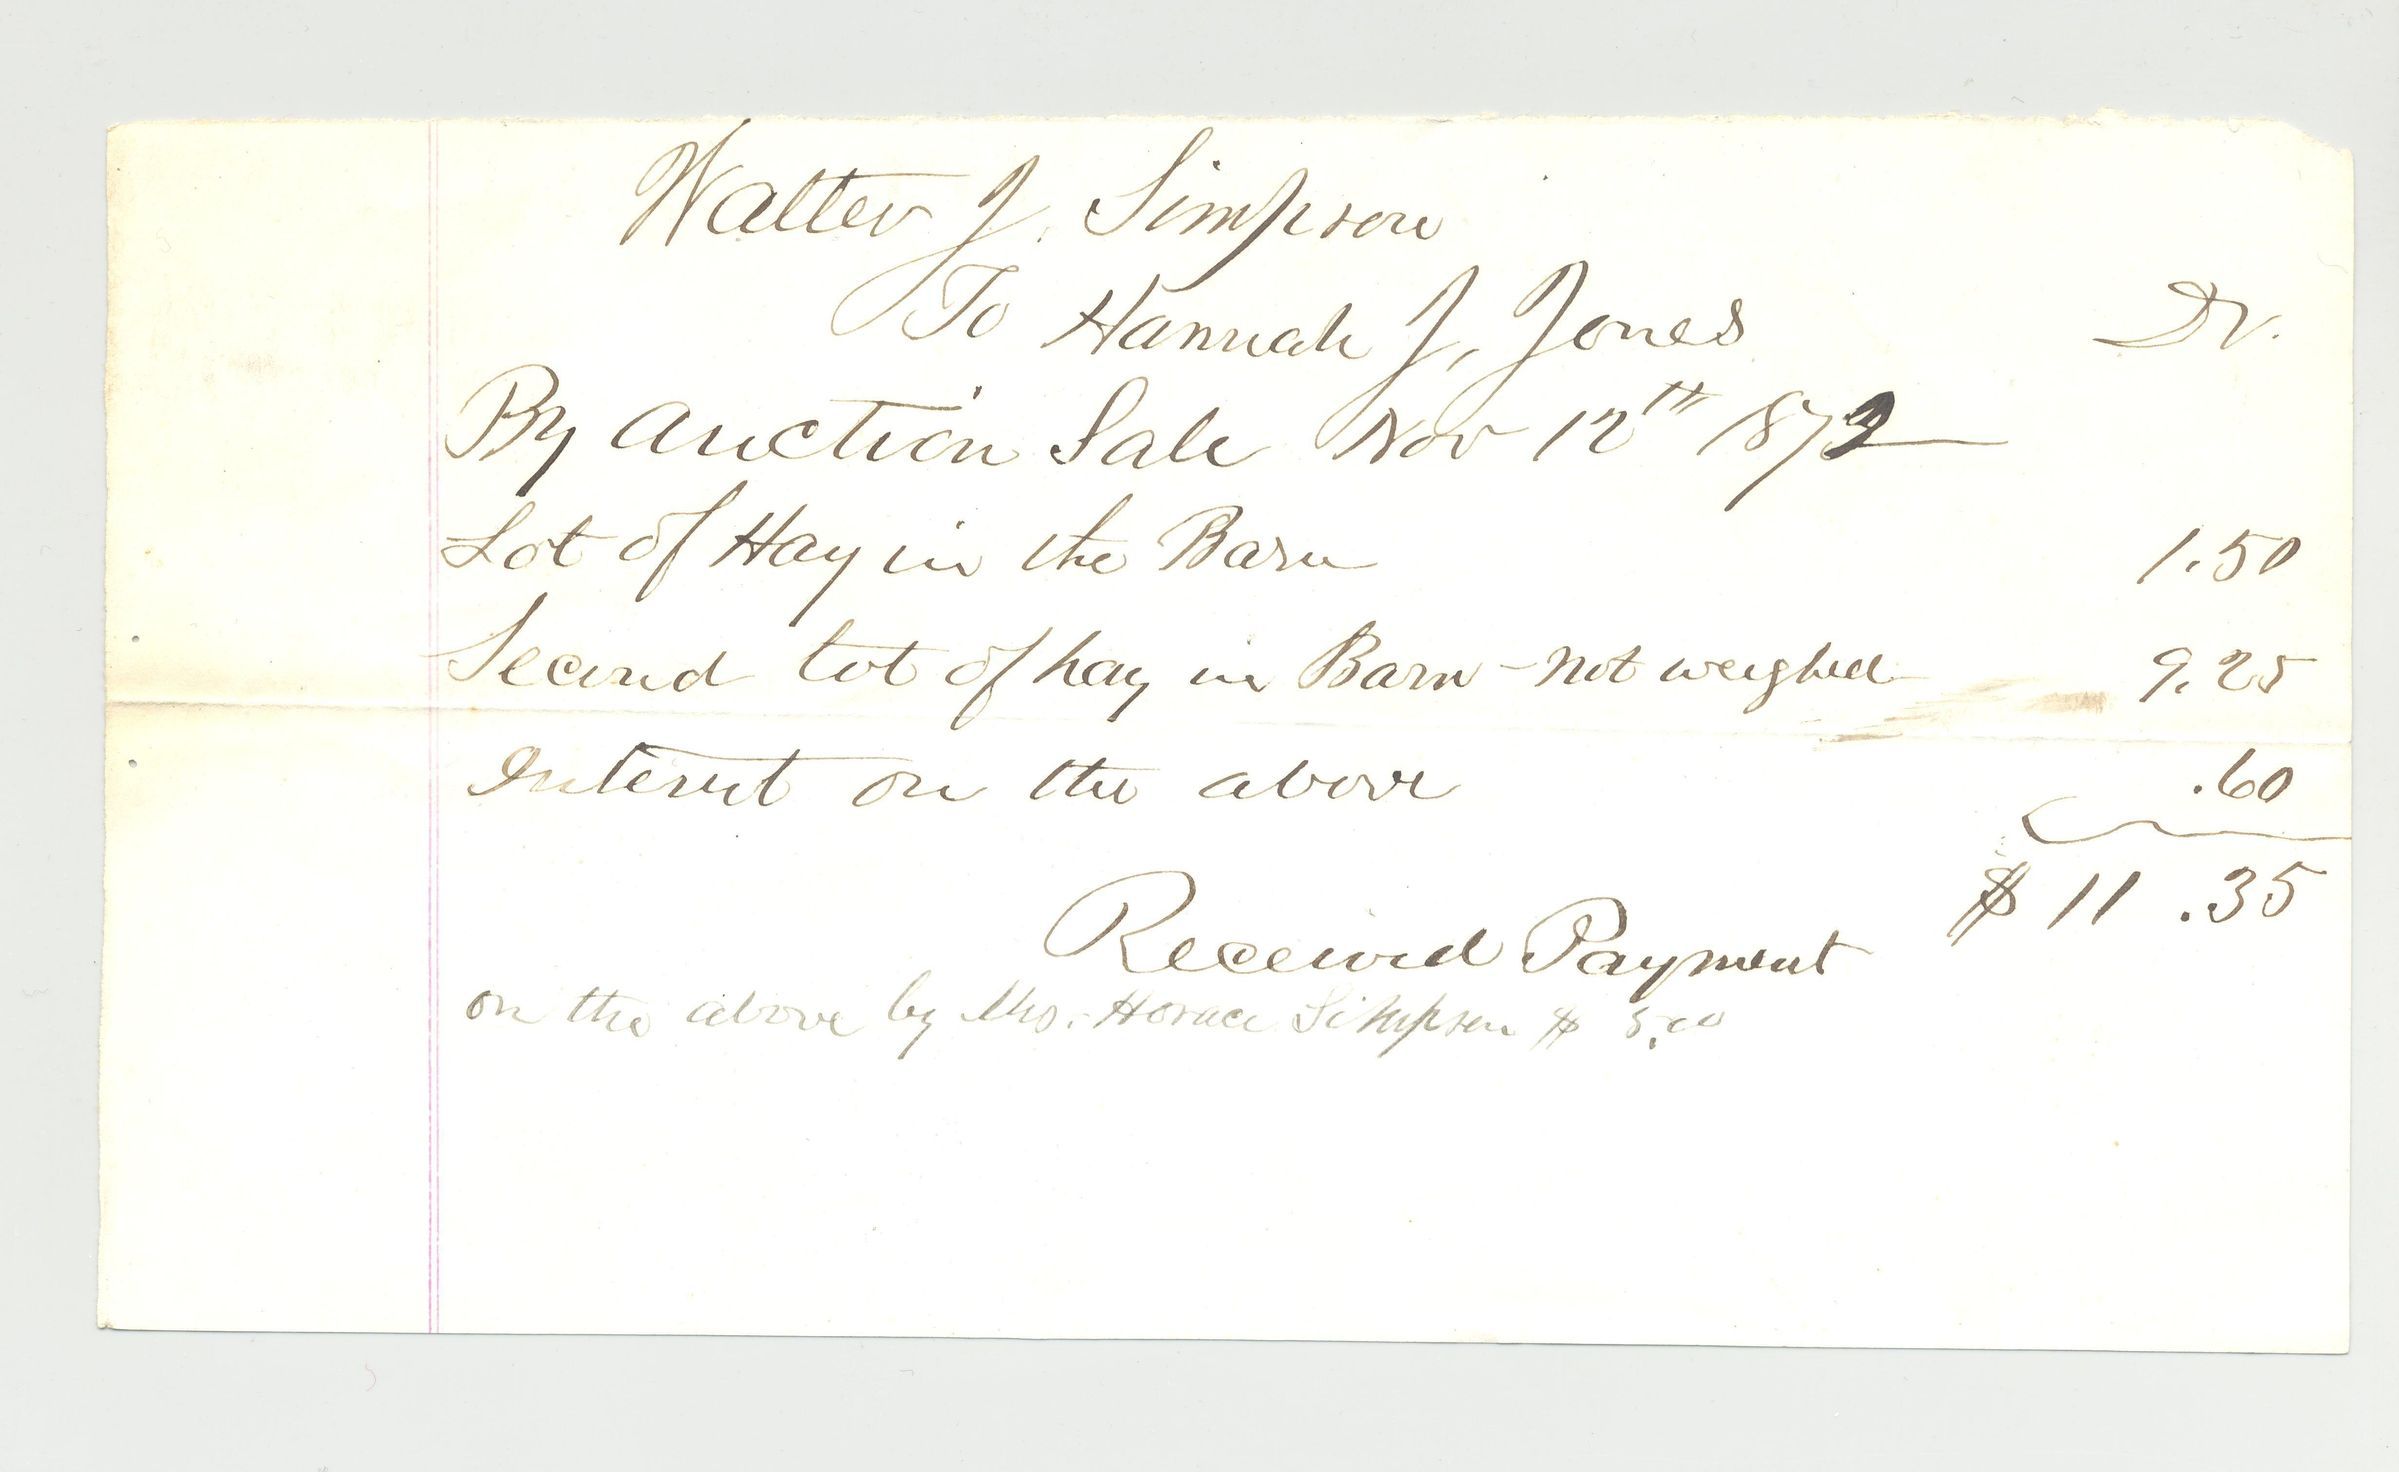 Walter J. Simpson
To Hannah J. Jones Dr.
By Auction Sale Nov 12th 1872
Lot of Hay in the Barn 1.50
Second lot of hay in Barn - not weighed 9.25
Interest on the above .60
$ 11.35
Received Payment
on the above by Horace Simpson $ 5.00